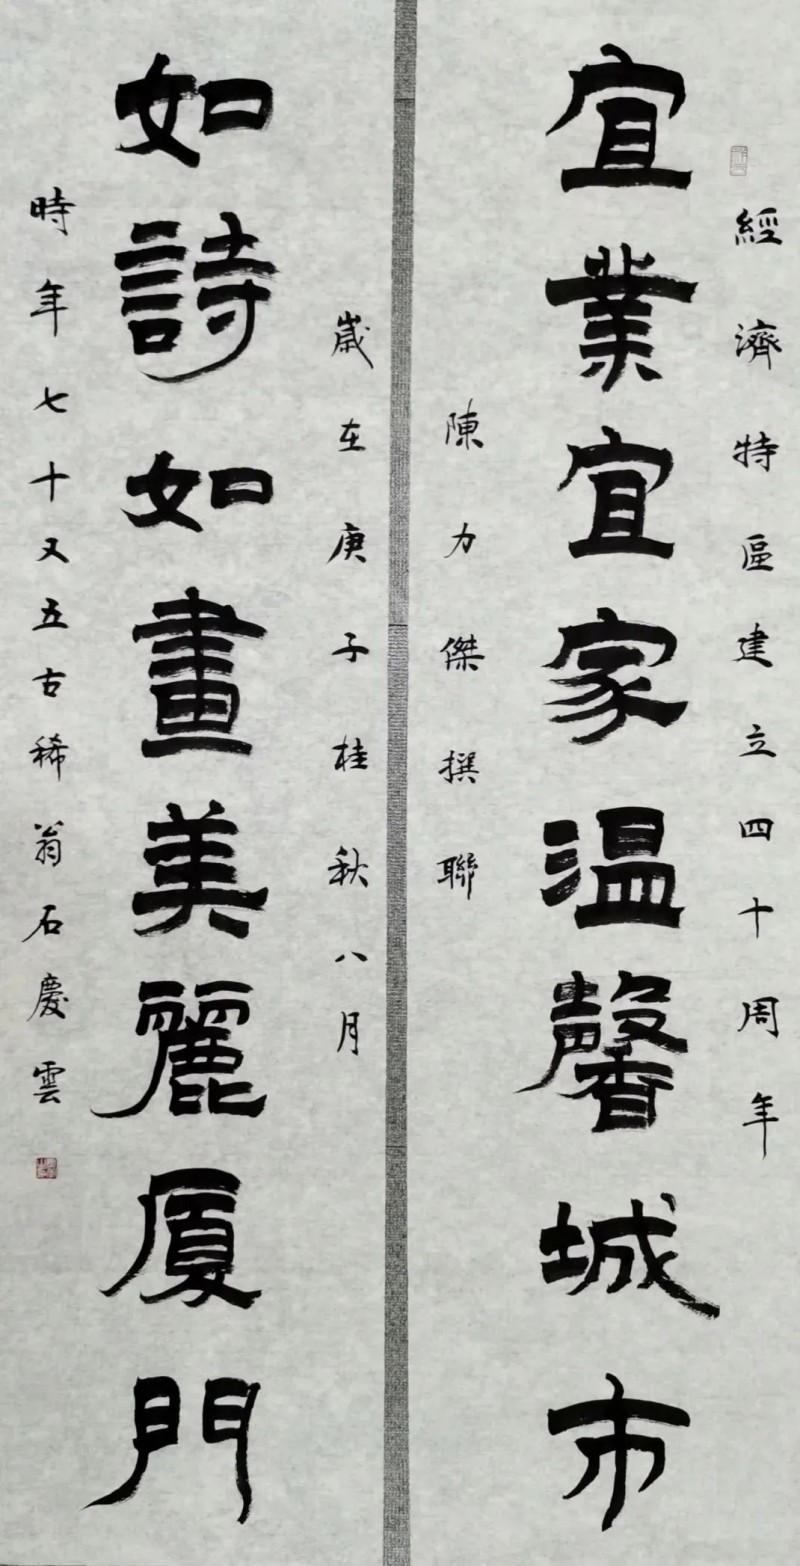 經濟特區建立四十周年
宜業宜家温馨城市
陳力傑撰聯
歲在庚子桂秋八月
如詩如畫美麗厦門
時年七十又五古稀翁石慶雲